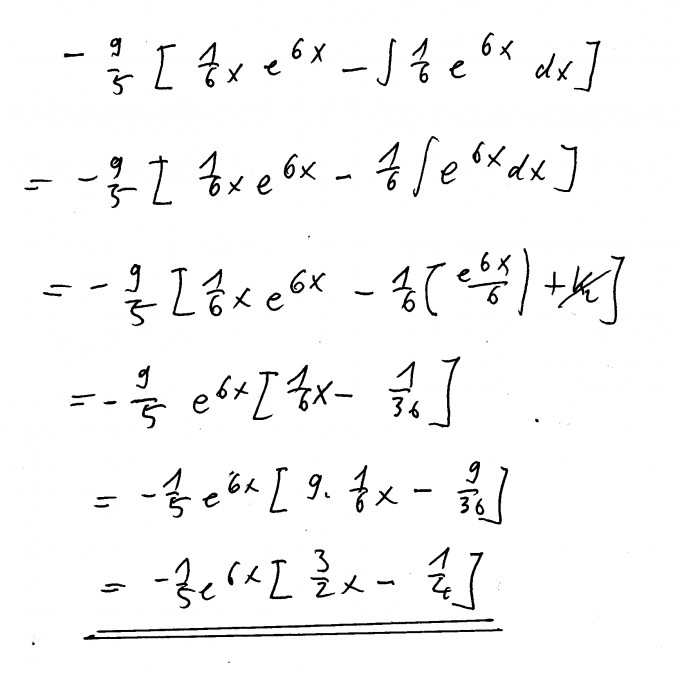 - 9/5 [ 1/6 x e^6x - ∫ 1/6 e^6x dx ]
= - 9/5 [ 1/6 x e^6x - 1/6 ∫ e^6x dx ]
= - 9/5 [ 1/6 x e^6x - 1/6 ( e^6x/6 ) + ]
= - 9/5 e^6x [ 1/6 x - 1/36 ]
= - 1/5 e^6x [ 9 · 1/6 x - 9/36 ]
= - 1/5 e^6x [ 3/2 x - 1/4 ]